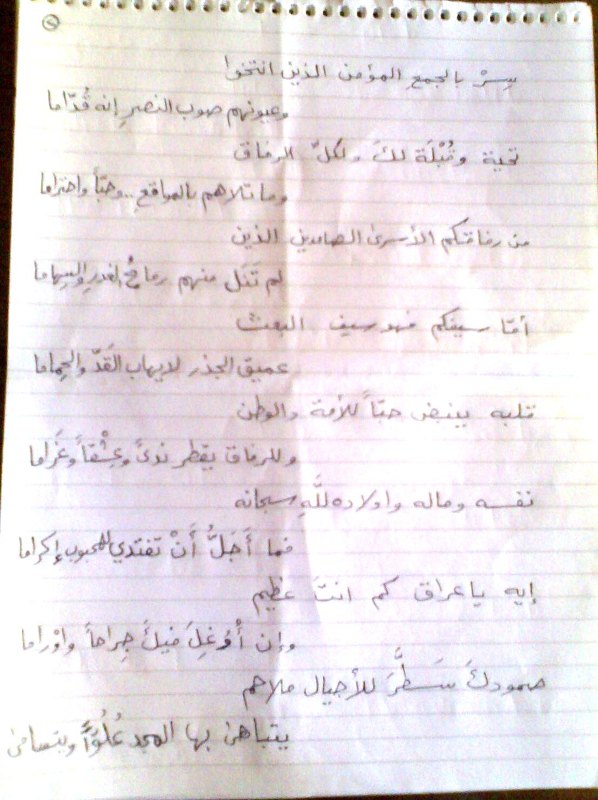 سِرْ بالجمع المؤمن الذين انتخوا
وعيونهم صوب النصرِ إنه قُدّاما
تحية وقُبْلَة لكَ ولكلّ الرفاق
وما تلاهم بالمواقع.. وحبّاً واحتراما
من رفاقكم الأسرى الصامدين الذين
لم تَنَل منهم رماحُ الغدرِ والسِهاما
أمّا سيفكم فهو سيف البعث
عميق الجذر لايهاب القَدّ والحِماما
قلبه ينبض حبّاً للأمة والوطن
وللرفاق يقطر ندىً وعِشْقاً وغَراما
نفسه وماله واولاده للَّهِ سبحانه
فما أَجَلُّ أَنْ تفتدي للمحبوب إكراما
إيه ياعراق كم انتَ عظيم
وإن أُوْغِلَ فيكَ جِراحاً واوْراما
صمودكَ سَطَّرَ للأجيال ملاحم
يتباهى بها المجد عُلُوّاً ويتسامى